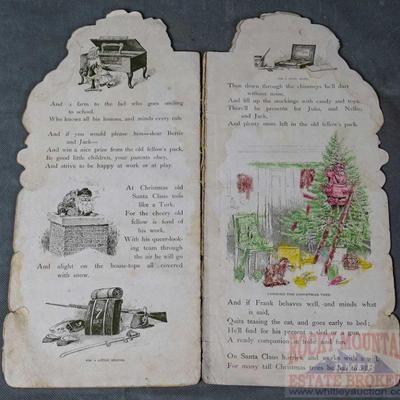 And a farm to the lad who goes smiling
to school,
Who knows all his lessons, and minds every rule.
And if you would please him—dear Bertie
and Jack—
And win a nice prize from the old fellow's pack,
Be good little children, your parents obey,
And strive to be happy at work or at play.
At Christmas old
Santa Claus toils
like a Turk,
For the cheery old
fellow is fond of
his work.
With his queer-look-
ing team through
the air he will go
And alight on the house-tops all covered
with snow.
FOR A LITTLE SOLDIER.
Then down through the chimneys he'll dart
without noise,
And fill up the stockings with candy and toys.
There'll be presents for Julia, and Nellie,
and Jack,
And plenty more left in the old fellow's pack.
THE CHRISTMAS TREE
And if Frank behaves well, and minds what
is said,
Quits teasing the cat, and goes early to bed;
He'll find for his present a sled or a gun,
A ready companion in frolic and fun.
On Santa Claus hurries and works with a
For many tall Christmas trees he has to
MOUNTAIN
ESTATE BROKER
www.whitleyauction.com